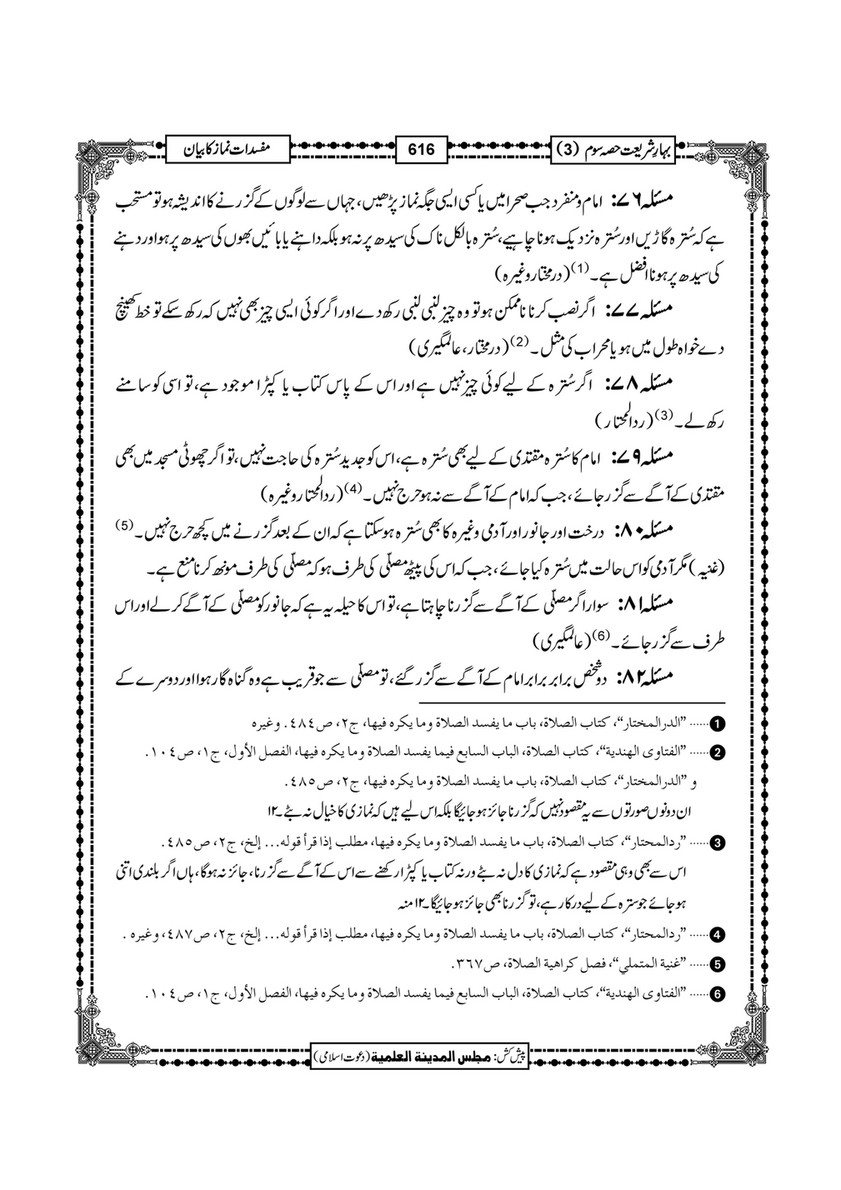 بہارِ شریعت حصہ سوم (3)
616
مفسداتِ نماز کا بیان
مسئلہ ۷۶: امام و منفرد جب صحرا میں یا کسی ایسی جگہ نماز پڑھیں، جہاں سے لوگوں کے گزرنے کا اندیشہ ہو تو مستحب
ہے کہ سُترہ گاڑیں اور سُترہ نزدیک ہونا چاہیے، سُترہ بالکل ناک کی سیدھ پر نہ ہو بلکہ داہنے یا بائیں بھوں کی سیدھ پر ہو اور دہنے
کی سیدھ پر ہونا افضل ہے۔ (1) (درمختار وغیرہ)
مسئلہ ۷۷: اگر نصب کرنا ناممکن ہو تو وہ چیز لنبی لنبی رکھ دے اور اگر کوئی ایسی چیز بھی نہیں کہ رکھ سکے تو خط کھینچ
دے خواہ طول میں ہو یا محراب کی مثل۔ (2) (درمختار، عالمگیری)
مسئلہ ۷۸: اگر سُترہ کے لیے کوئی چیز نہیں ہے اور اس کے پاس کتاب یا کپڑا موجود ہے، تو اسی کو سامنے
رکھ لے۔ (3) (ردالمحتار)
مسئلہ ۷۹: امام کا سُترہ مقتدی کے لیے بھی سُترہ ہے، اس کو جدید سُترہ کی حاجت نہیں، تو اگر چھوٹی مسجد میں بھی
مقتدی کے آگے سے گزر جائے، جب کہ امام کے آگے سے نہ ہو حرج نہیں۔ (4) (ردالمحتار وغیرہ)
مسئلہ ۸۰: درخت اور جانور اور آدمی وغیرہ کا بھی سُترہ ہو سکتا ہے کہ ان کے بعد گزرنے میں کچھ حرج نہیں۔ (5)
(غنیہ) مگر آدمی کو اس حالت میں سُترہ کیا جائے، جب کہ اس کی پیٹھ مصلّی کی طرف ہو کہ مصلّی کی طرف مونھ کرنا منع ہے۔
مسئلہ ۸۱: سوار اگر مصلّی کے آگے سے گزرنا چاہتا ہے، تو اس کا حیلہ یہ ہے کہ جانور کو مصلّی کے آگے کر لے اور اس
طرف سے گزر جائے۔ (6) (عالمگیری)
مسئلہ ۸۲: دو شخص برابر برابر امام کے آگے سے گزر گئے، تو مصلّی سے جو قریب ہے وہ گناہ گار ہوا اور دوسرے کے
1 ...... ”الدرالمختار“، كتاب الصلاة، باب ما يفسد الصلاة وما يكره فيها، ج۲، ص٤٨٤. وغيره
2 ...... ”الفتاوى الهندية“، كتاب الصلاة، الباب السابع فيما يفسد الصلاة وما يكره فيها، الفصل الأول، ج۱، ص۱۰٤.
و ”الدرالمختار“، كتاب الصلاة، باب ما يفسد الصلاة وما يكره فيها، ج۲، ص٤٨٥.
ان دونوں صورتوں سے یہ مقصود نہیں کہ گزرنا جائز ہو جائیگا بلکہ اس لیے ہیں کہ نمازی کا خیال نہ بٹے۔۱۲
3 ...... ”ردالمحتار“، كتاب الصلاة، باب ما يفسد الصلاة وما يكره فيها، مطلب إذا قرأ قوله... إلخ، ج۲، ص٤٨٥.
اس سے بھی وہی مقصود ہے کہ نمازی کا دل نہ بٹے ورنہ کتاب یا کپڑا رکھنے سے اس کے آگے سے گزرنا، جائز نہ ہوگا، ہاں اگر بلندی اتنی
ہو جائے جو سترہ کے لیے درکار ہے، تو گزرنا بھی جائز ہو جائیگا۔۱۲ منہ
4 ...... ”ردالمحتار“، كتاب الصلاة، باب ما يفسد الصلاة وما يكره فيها، مطلب إذا قرأ قوله... إلخ، ج۲، ص٤٨٧، وغيره .
5 ...... ”غنية المتملي“، فصل كراهية الصلاة، ص۳٦۷.
6 ...... ”الفتاوى الهندية“، كتاب الصلاة، الباب السابع فيما يفسد الصلاة وما يكره فيها، الفصل الأول، ج۱، ص۱۰٤.
پیش کش: مجلس المدينة العلمية (دعوتِ اسلامی)